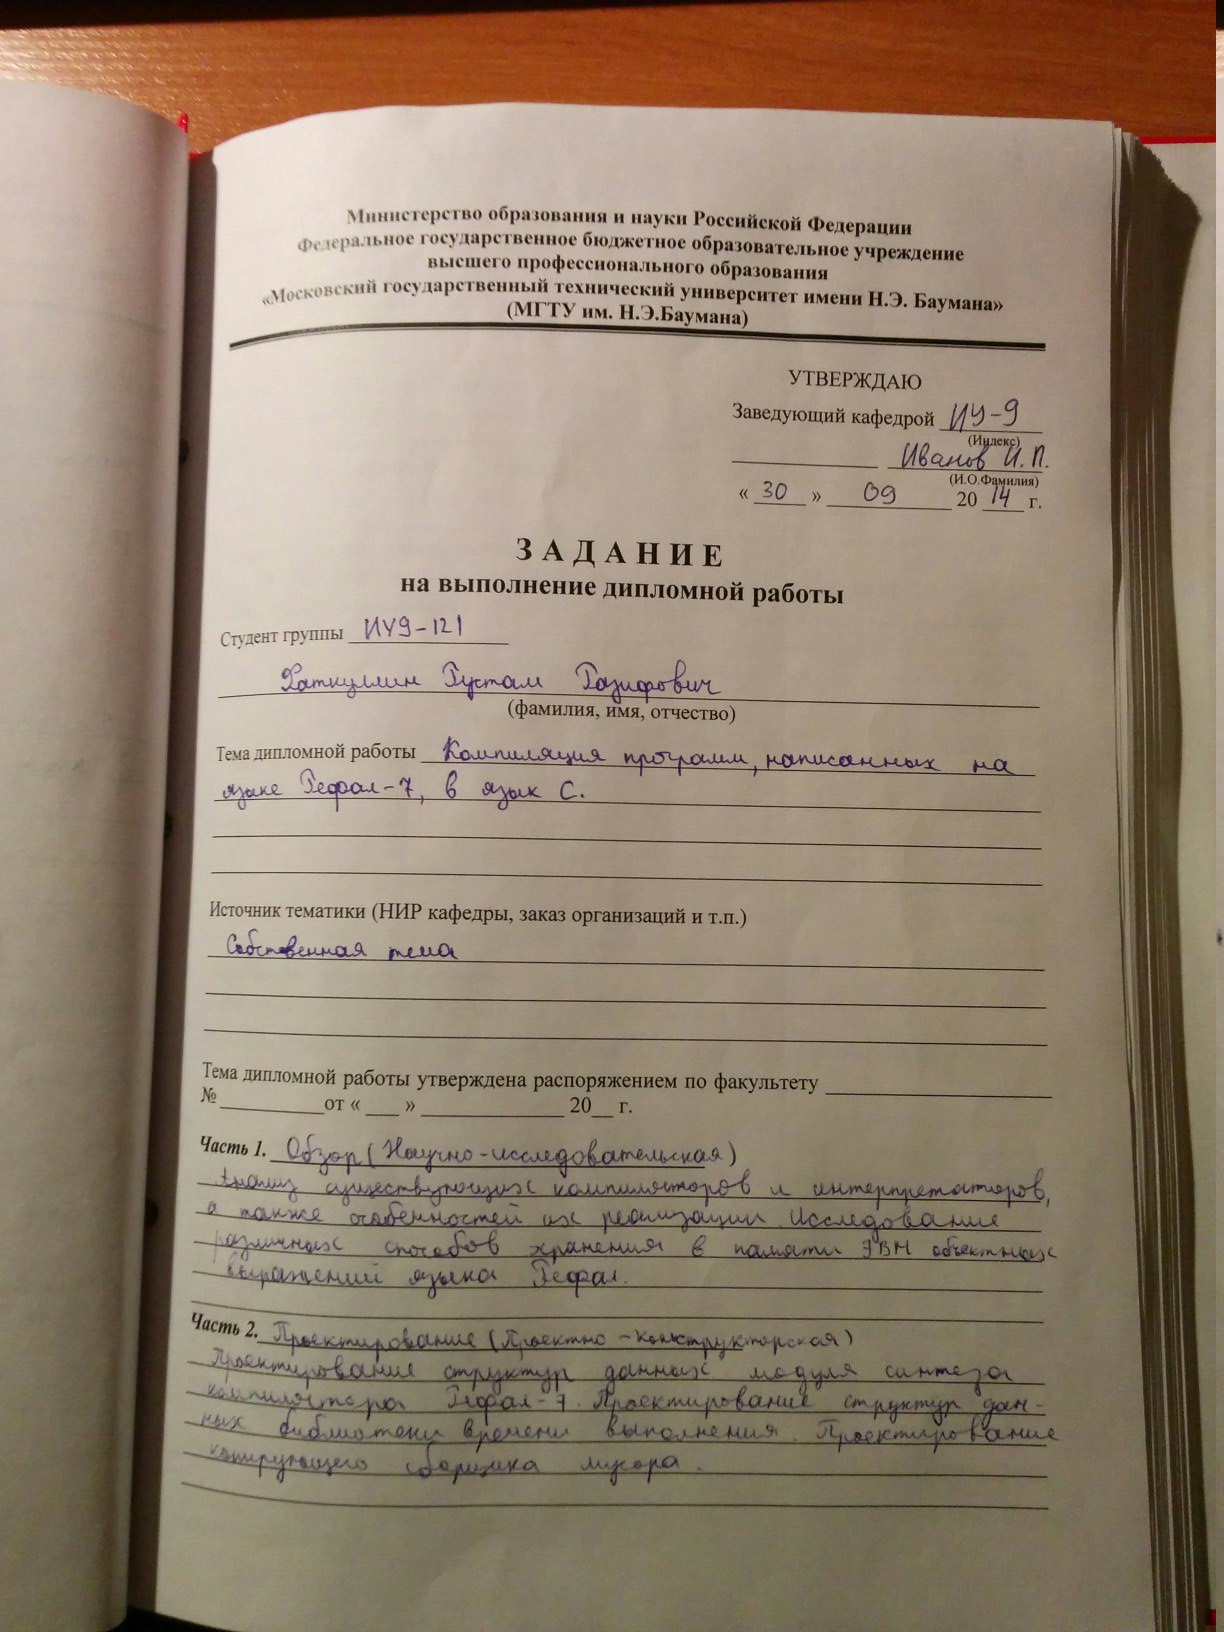 Министерство образования и науки Российской Федерации
Федеральное государственное бюджетное образовательное учреждение
высшего профессионального образования
«Московский государственный технический университет имени Н.Э. Баумана»
(МГТУ им. Н.Э.Баумана)
УТВЕРЖДАЮ
Заведующий кафедрой ИУ-9
(Индекс)
Иванов И. П.
(И.О.Фамилия)
« 30 » 09 20 14 г.
З А Д А Н И Е
на выполнение дипломной работы
Студент группы ИУ9-121
Хаткуллин Рустам Разифович
(фамилия, имя, отчество)
Тема дипломной работы Компиляция программ, написанных на
языке Рефал-7, в язык С.
Источник тематики (НИР кафедры, заказ организаций и т.п.)
Собственная тема
Тема дипломной работы утверждена распоряжением по факультету
№ от « » 20 г.
Часть 1. Обзор (Научно-исследовательская)
Анализ существующих компиляторов и интерпретаторов,
а также особенностей их реализации. Исследование
различных способов хранения в памяти ЭВМ объектных
выражений языка Рефал.
Часть 2. Проектирование (Проектно-конструкторская)
Проектирование структур данных модуля синтеза
компилятора Рефал-7. Проектирование структур дан-
ных библиотеки времени выполнения. Проектирование
копирующего сборщика мусора.